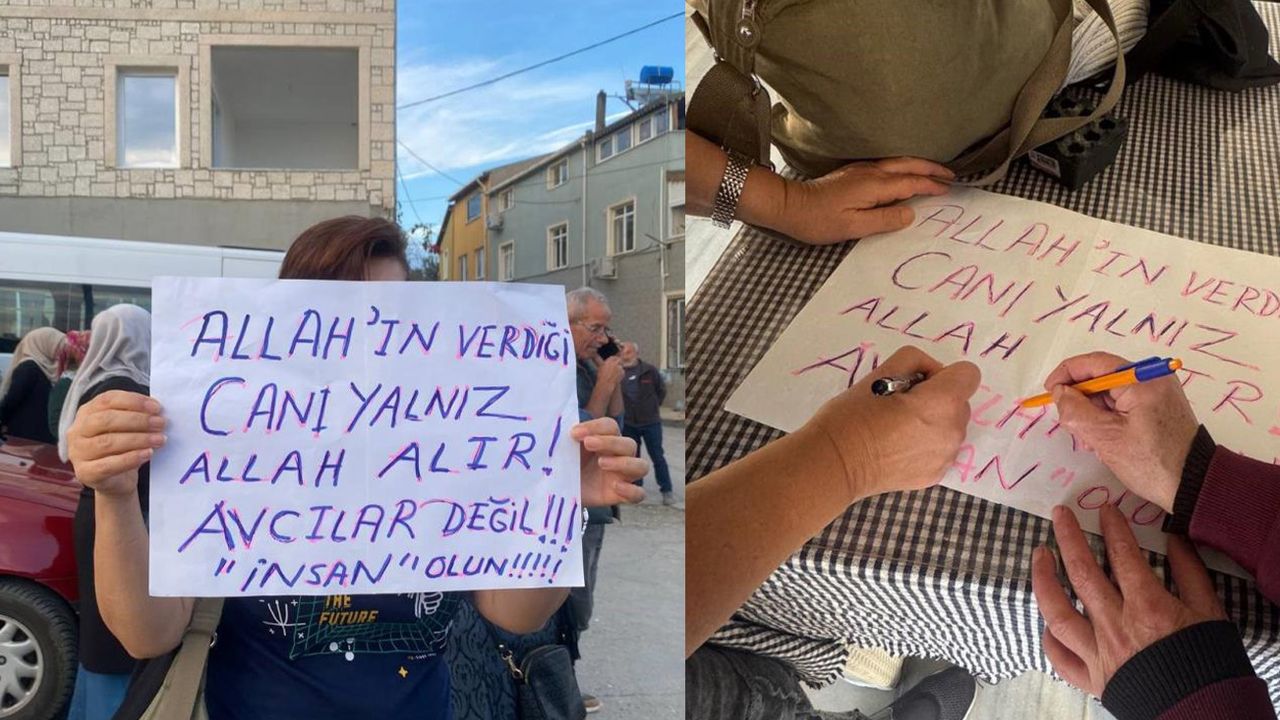 ALLAH'IN VERDİĞİ
CANI YALNIZ
ALLAH ALIR!
AVCILAR DEĞİL!!!
"İNSAN" OLUN!!!!!
THE
FUTURE
ALLAH'IN VERD
CANI YALNIZ
ALLAH